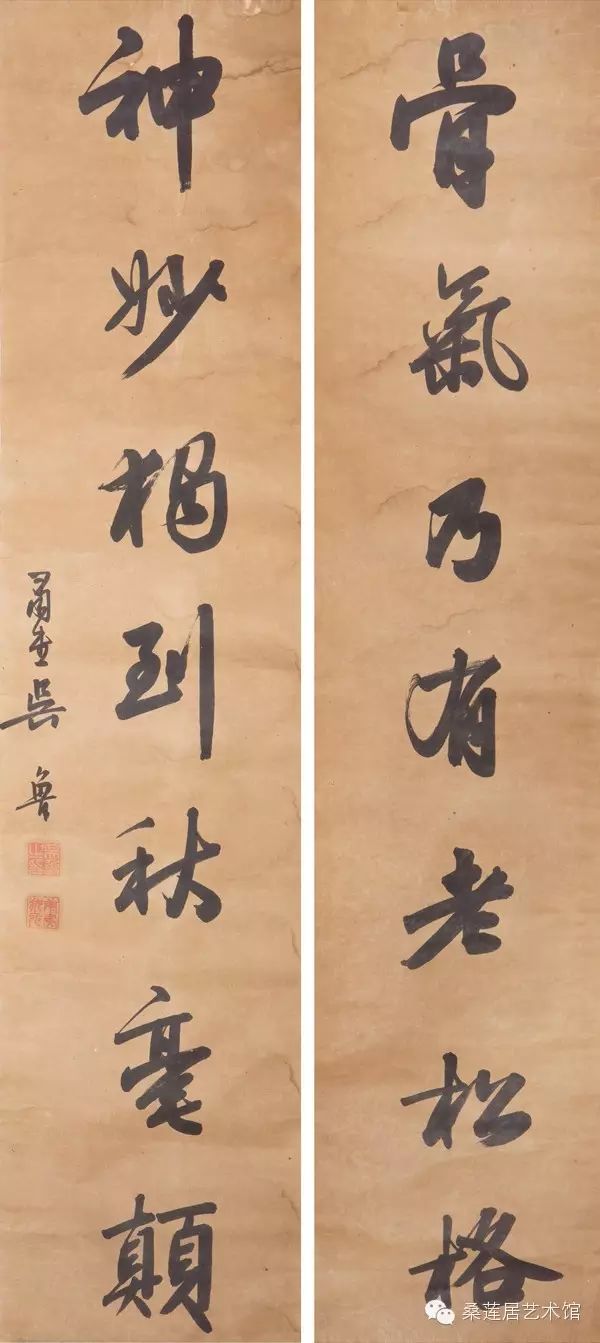 骨氣乃有老松格
神妙獨到秋毫顛
肅堂吳魯
桑莲居艺术馆